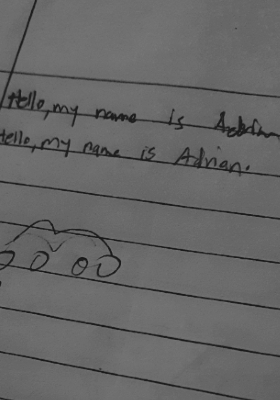 Hello, my name is
Hello, my name is Adrian.